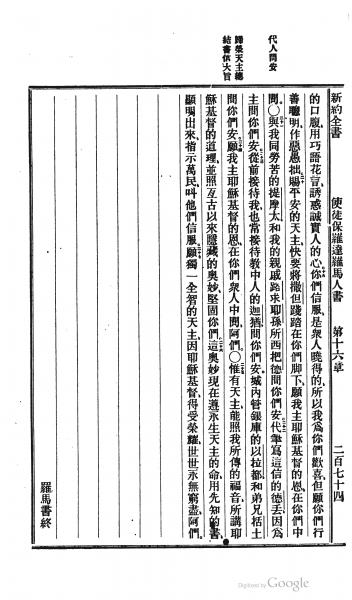 新約全書 使徒保羅達羅馬人書 第十六章 二百七十四
代人問安
歸榮天主總
結書信大旨
的口腹用巧語花言誘惑誠實人的心你們信服是衆人曉得的所以我爲你們歡喜但願你們行
善聰明作惡愚拙賜平安的天主快要將撒但踐踏在你們脚下願我主耶穌基督的恩在你們中
間〇與我同勞苦的提摩太和我的親戚路求耶孫所西把德問你們安代筆寫這信的德丟因爲
主問你們安從前接待我也當接待教中人的迦猶問你們安城內管銀庫的以拉都和弟兄括土
問你們安願我主耶穌基督的恩在你們衆人中間阿們〇惟有天主能照我所傳的福音所講耶
穌基督的道理並照亙古以來隱藏的奧妙堅固你們這奧妙現在遵永生天主的命用先知的書
顯明出來指示萬民叫他們信服願獨一全智的天主因耶穌基督得受榮耀世世永無窮盡阿們
羅馬書終
Digitized by Google